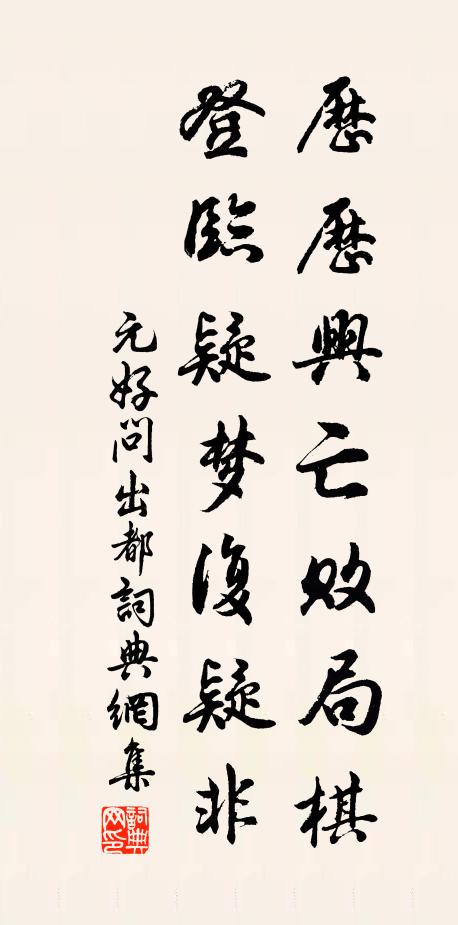 歷歷興亡敗局棋
登臨疑梦復疑非
元好問出都詞典網集
詞典网印